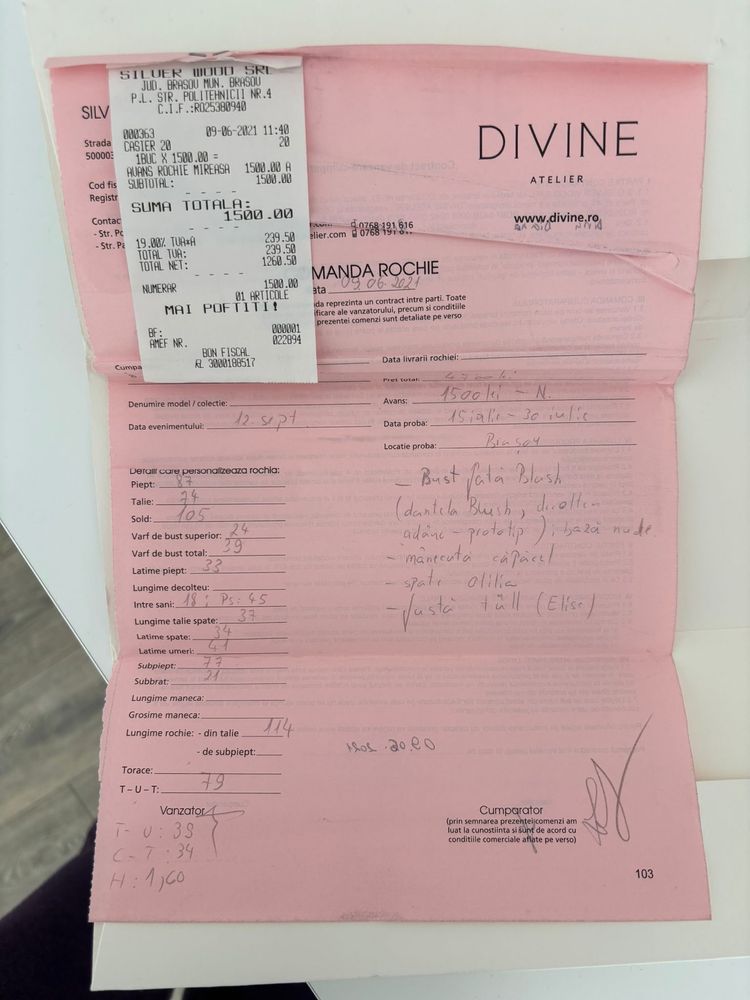 SILVER WOOD SRL
JUD. BRASOV MUN. BRASOV
P.L. STR. POLITEHNICII NR.4
C.I.F.:RO25380940
000363 09-06-2021 11:40
CASIER 20 20
1BUC X 1500.00 =
AVANS ROCHIE MIREASA 1500.00 A
SUBTOTAL: 1500.00
SUMA TOTALA:
1500.00
19.00% TVA*A 239.50
TOTAL TVA: 239.50
TOTAL NET: 1260.50
NUMERAR 1500.00
01 ARTICOLE
MAI POFTITI!
BF: 000001
AMEF NR. 022894
BON FISCAL
SILV
Strada
Cod fis
Registr
Contac
- Str. Po
- Str. Pa
DIVINE
ATELIER
www.divine.ro
0768 191 616
elier.com
MANDA ROCHIE
ata 09.06.2021
da reprezinta un contract intre parti. Toate
ificare ale vanzatorului, precum si conditiile
prezentei comenzi sunt detaliate pe verso
Cumpa
Data livrarii rochiei:
Pret total:
Denumire model / colectie:
Avans: 1500 lei - N.
Data evenimentului: 12 sept
Data proba: 15 iulie - 30 iulie
Locatie proba: Brașov
Detalii care personalizeaza rochia:
Piept: 87
Talie: 74
Sold: 105
Varf de bust superior: 24
Varf de bust total: 39
Latime piept: 33
Lungime decolteu:
Intre sani: 18 ; Ps: 45
Lungime talie spate: 37
Latime spate: 34
Latime umeri: 41
Subpiept: 77
Subbrat: 21
Lungime maneca:
Grosime maneca:
Lungime rochie: - din talie 114
- de subpiept:
Torace:
T – U – T: 79
- Bust fată Blush
(dantela Blush, decolteu
adânc - prototip); bază nude
- mânecuță căpăcel
- spate Olilia
- fustă tüll (Elise)
09.06.2021
Vanzator
T - U : 38
C - T : 34
H : 1,60
Cumparator
(prin semnarea prezentei comenzi am
luat la cunostiinta si sunt de acord cu
conditiile comerciale aflate pe verso)
103